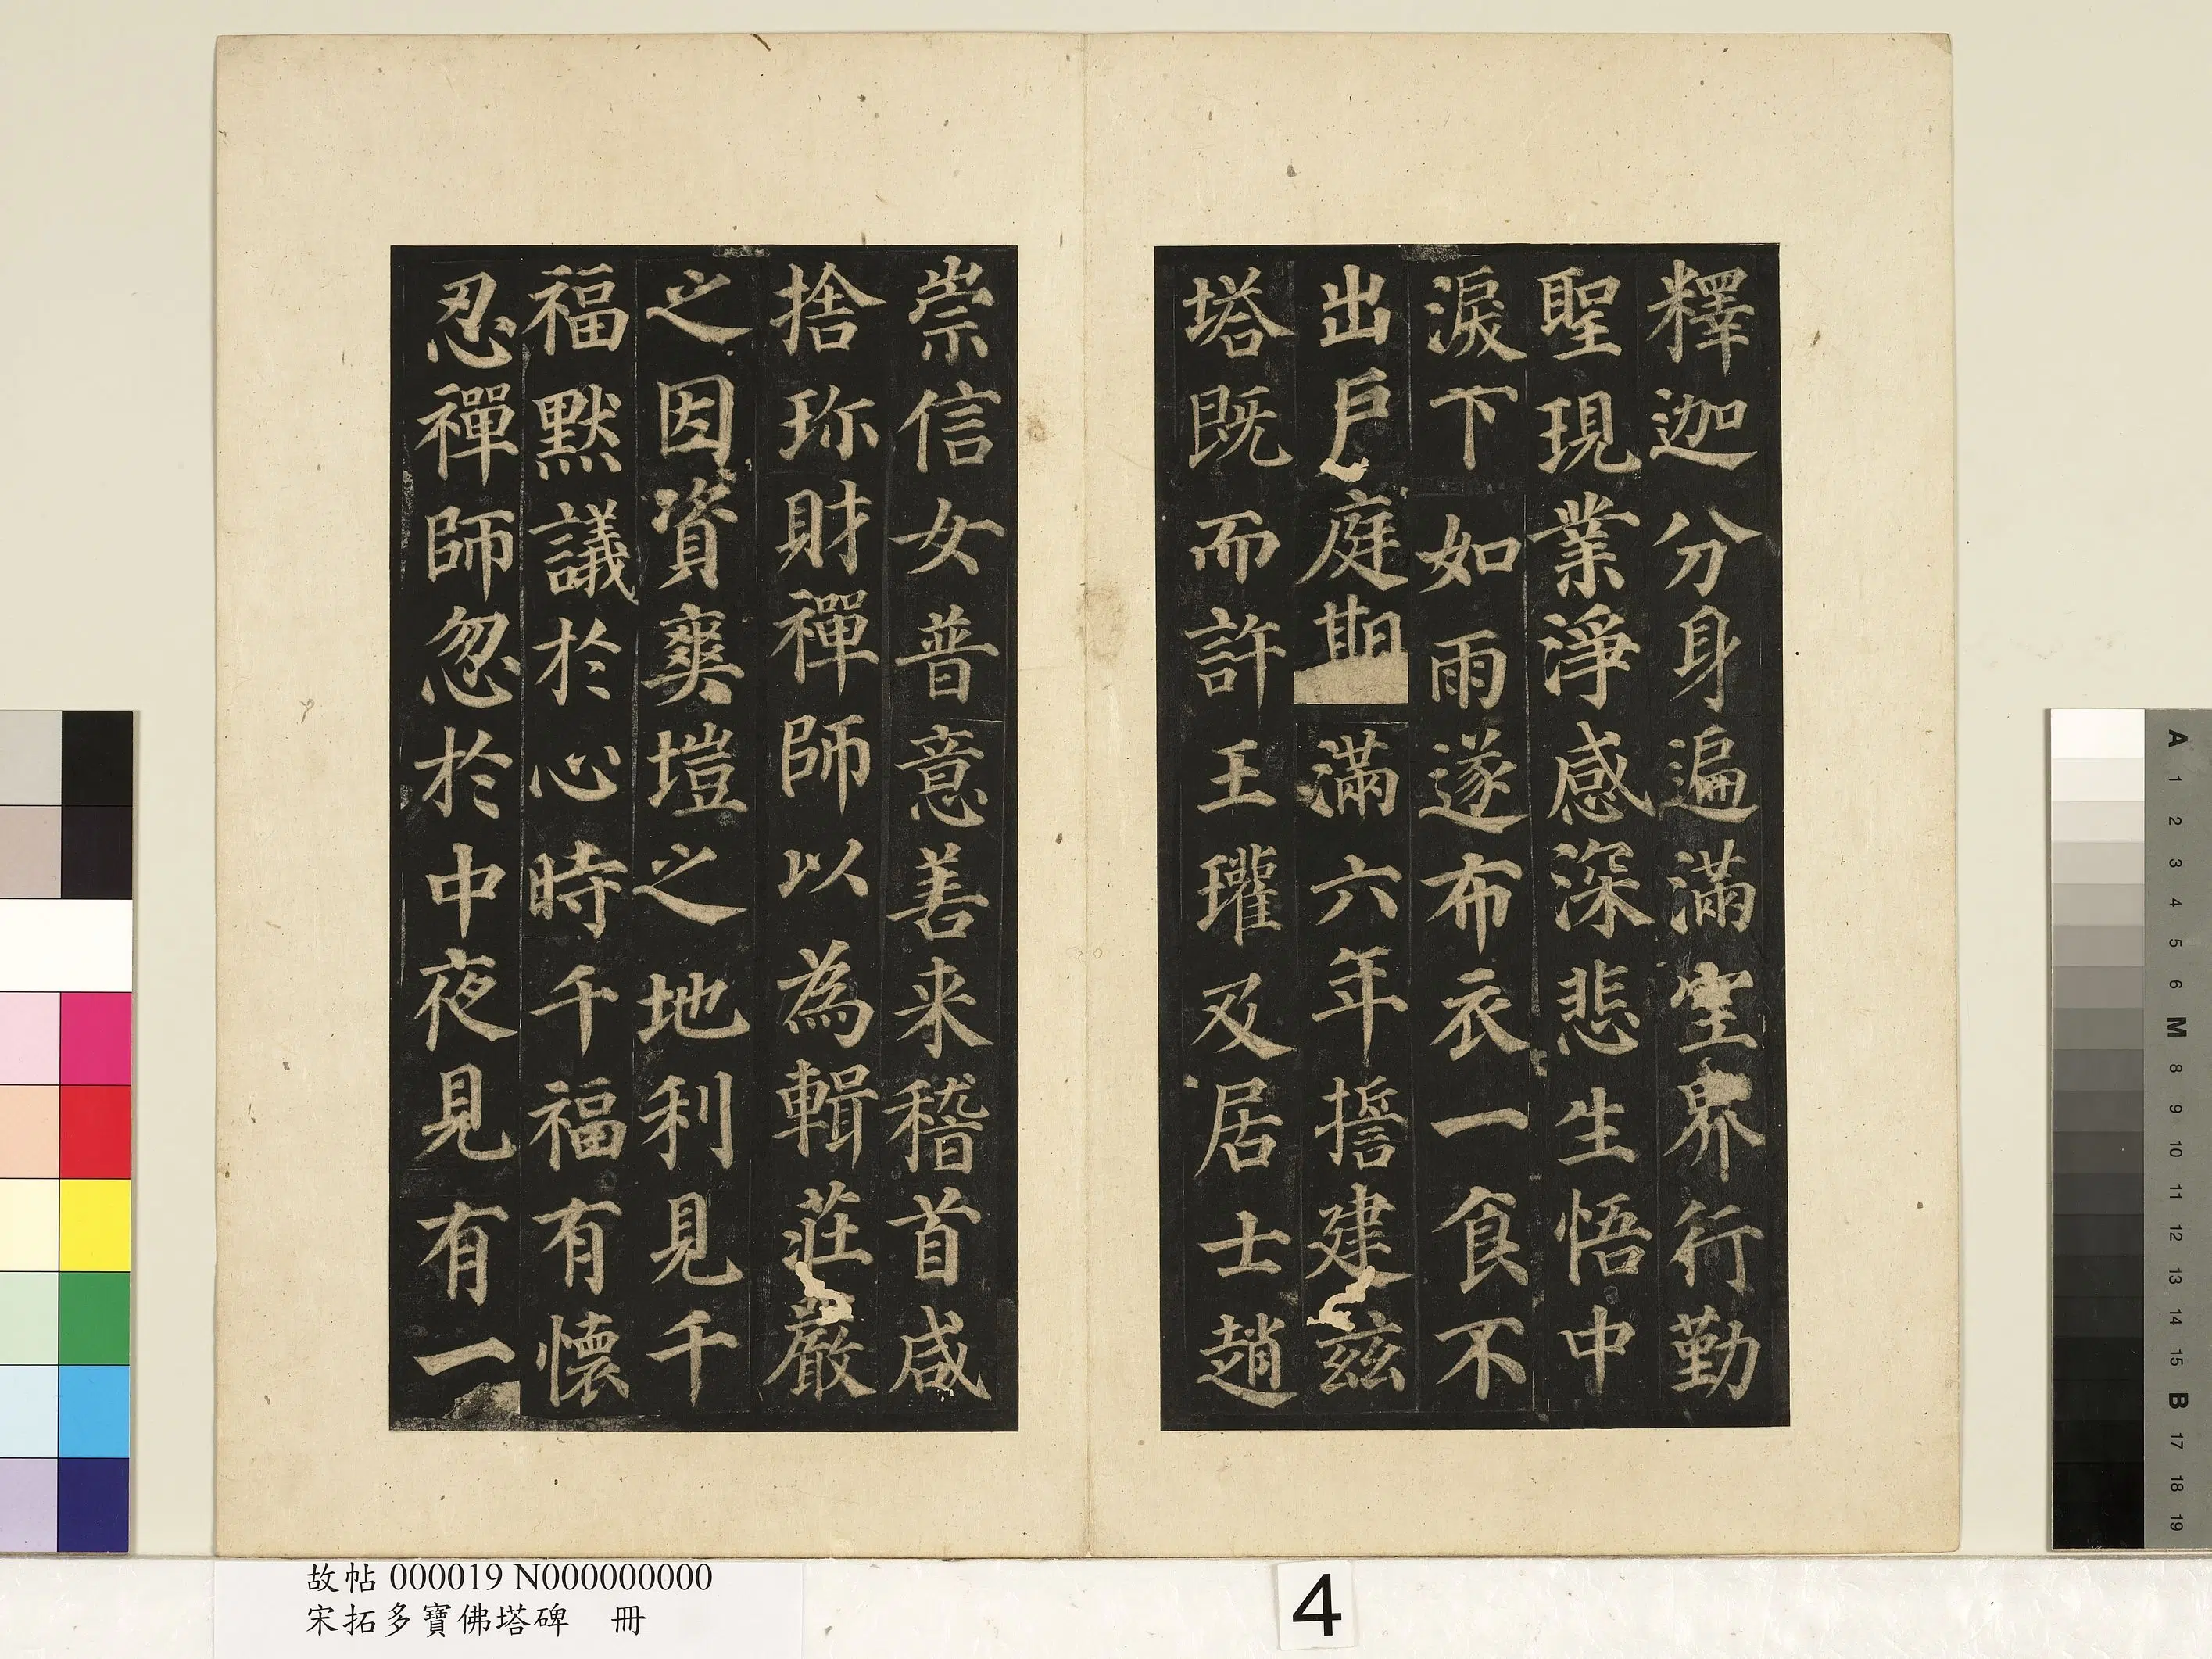 釋迦分身遍滿空界行勤
聖現業淨感深悲生悟中
淚下如雨遂布衣一食不
出戶庭期滿六年誓建茲
塔既而許王瓘及居士趙
崇信女普意善来稽首咸
捨珎財禪師以為輯莊嚴
之因資爽塏之地利見千
福默議於心時千福有懷
忍禪師忽於中夜見有一
故帖 000019 N000000000
宋拓多寶佛塔碑 冊
4
A
1
2
3
4
5
6
M
8
9
10
11
12
13
14
15
B
17
18
19